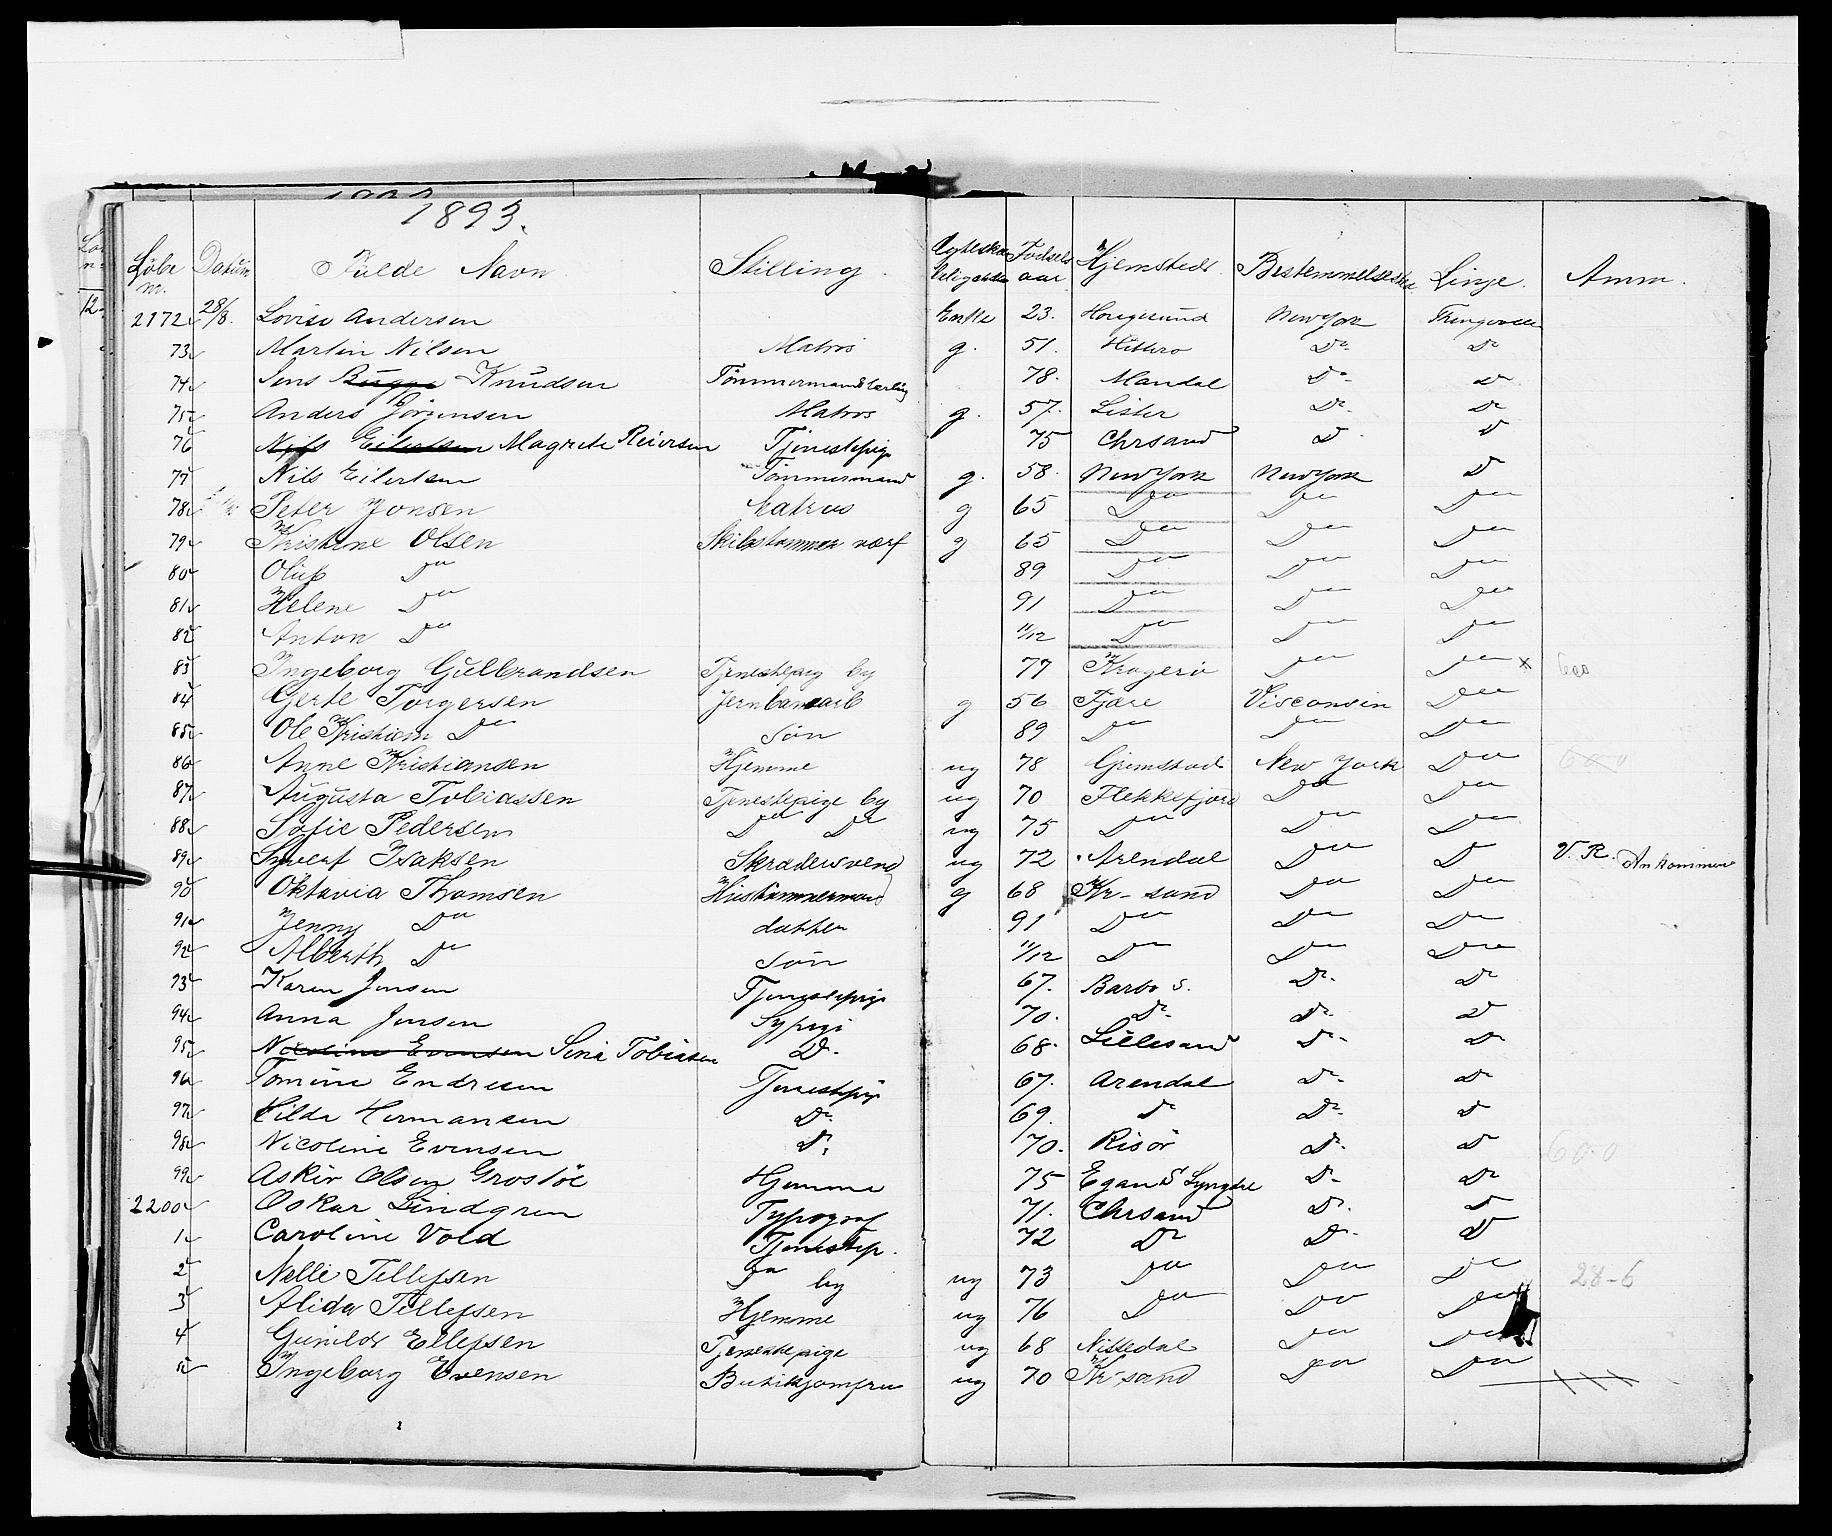 1893.
Løbe nr. Datum Fulde Navn Stilling Fødsels aar Hjemsted Bestemmelsessted Linje. Anm.
2172 28/8 Lovise Andersen Enke 23. Hougesund New York Thingvalla
73 Martin Nilsen Matros g. 51. Hittero Do Do
74 Jens Bugge Knudsen Tømmermandslærling 78. Mandal Do Do
75 Anders Jörgensen Matros g. 57. Lister Do Do
76 Nils Eilertsen Magrete Reiersen Tjenestepige 75 Chrsand D D
77 Nils Eilertsen Tömmermand g. 58. New York New York D
78 Peter Jonsen Matros g 65 Do Do Do
79 Kristine Olsen g 65 Do Do Do
80 Oluf Do 89 Do Do Do
81 Helene Do 91 Do Do Do
82 Anton Do 11/12 Do Do Do
83 Ingeborg Gulbrandsen Tjenestepig by 77 Kragerö Do Do x 600
84 Gerte Torgersen Jernbanearb g 56 Fjære Visconsin Do
85 Ole Kristian Do Sön 89 Do Do Do
86 Anne Kristiansen Hjemme ug 78 Grimstad New York Do 600
87 Augusta Tobiassen Tjenestepige by ug 70 Flekkefjord Do Do
88 Sofie Pedersen Do Do ug 75 Do Do Do
89 Isaksen Skrædersvend ug 72 Arendal Do D V. R. Ankommer
90 Oktavia Thomsen Hustömmermand g 68 Kr-sand Do Do
91 Jenny Do datter 91 Do Do Do
92 Alberth Do Sön 11/12 Do Do Do
93 Karen Jensen Tjenestepige 67. Barbo S. Do D
94 Anna Jensen Sypige 70. Do Do D
95 Nicoline Evensen Sine Tobiasen D. 68. Lillesand Do D
96 Tomine Endresen Tjenestepige 67. Arendal Do D
97 Hilda Hermansen Do 69. D Do D
98 Nicoline Evensen D. 70. Risör Do D 600
99 Askir Olsen Grostöl Hjemme 75 Do Do
2200 Oskar Lindgren Typograf 71. Chrsand Do D
1 Caroline Vold Tjenestep. 72 Do Do D
2 Nelli Tellefsen Do by ug 73 Do Do Do 28-6
3 Alida Tellefsen Hjemme ug 76 Do Do Do
4 Gunild Ellefsen Tjenestepige ug 68 Nissedal Do Do
5 Ingeborg Evensen Butikjomfru ug 70 Kr-sand Do Do